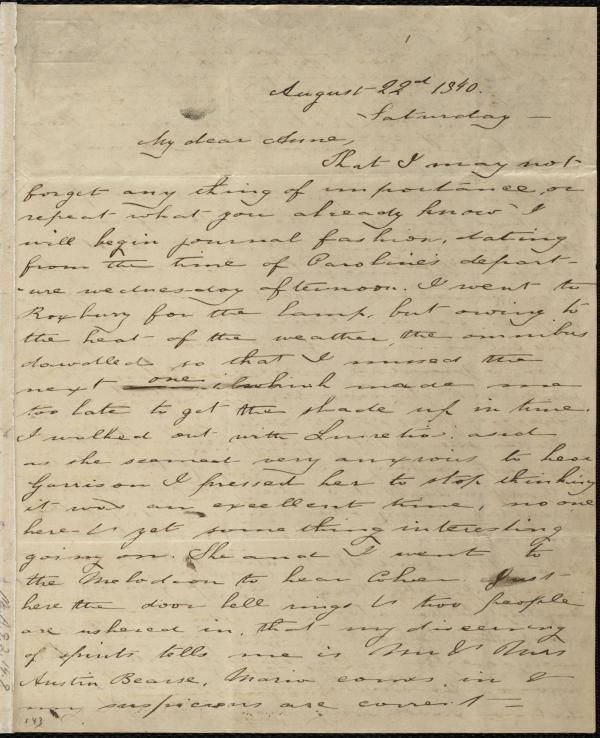 August 22d 1840.
Saturday —
My dear Anne,
That I may not
forget any thing of importance, or
repeat what you already know I
will begin journal fashion, dating
from the time of Caroline's depart-
ure wednesday afternoon. I went to
Roxbury for the lamp, but owing to
the heat of the weather, the omnibus
dawdled so that I missed the
next one which made me
too late to get the shade up in time.
I walked out with Lucretia. and
as she seemed very anxious to hear
Garrison I pressed her to stop thinking
it was an excellent time, no one
here & yet something interesting
going on. She and I went to
the Melodeon to hear Cohen. Just
here the door bell rings & two people
are ushered in, that my discerning
of spirits tells me is Mr & Mrs
Austin Bearse. Maria comes in &
my suspicions are correct —
143